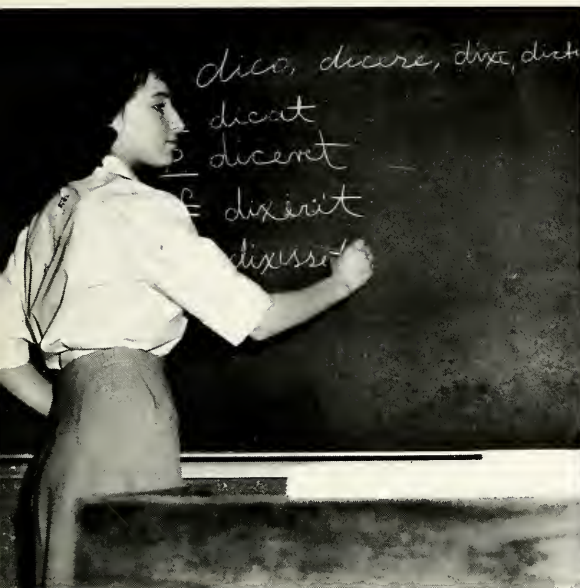 dico, dicere, dixi, dict
dicat
diceret
dixerit
dixisset